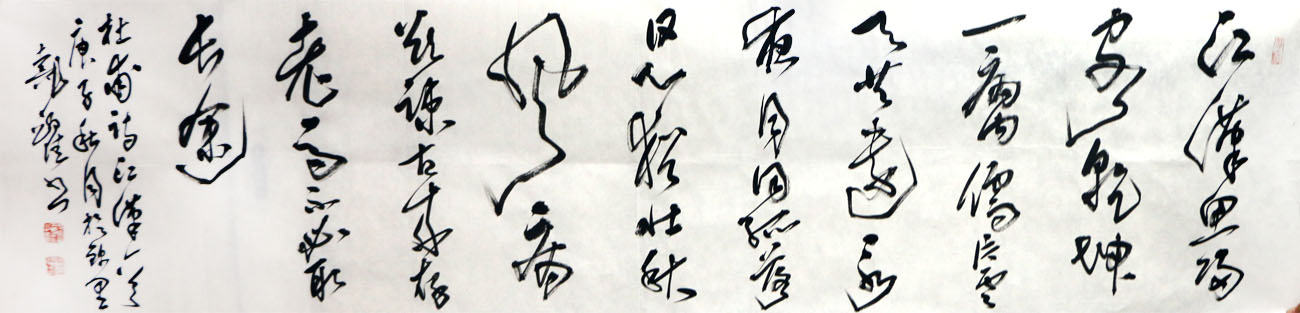 江漢思歸
客乾坤
一腐儒片雲
天共遠永
夜月同孤落
日心猶壯秋
風病
欲疎古來存
老馬不必取
長途
杜甫詩江漢一首
庚子秋月於錦里
書